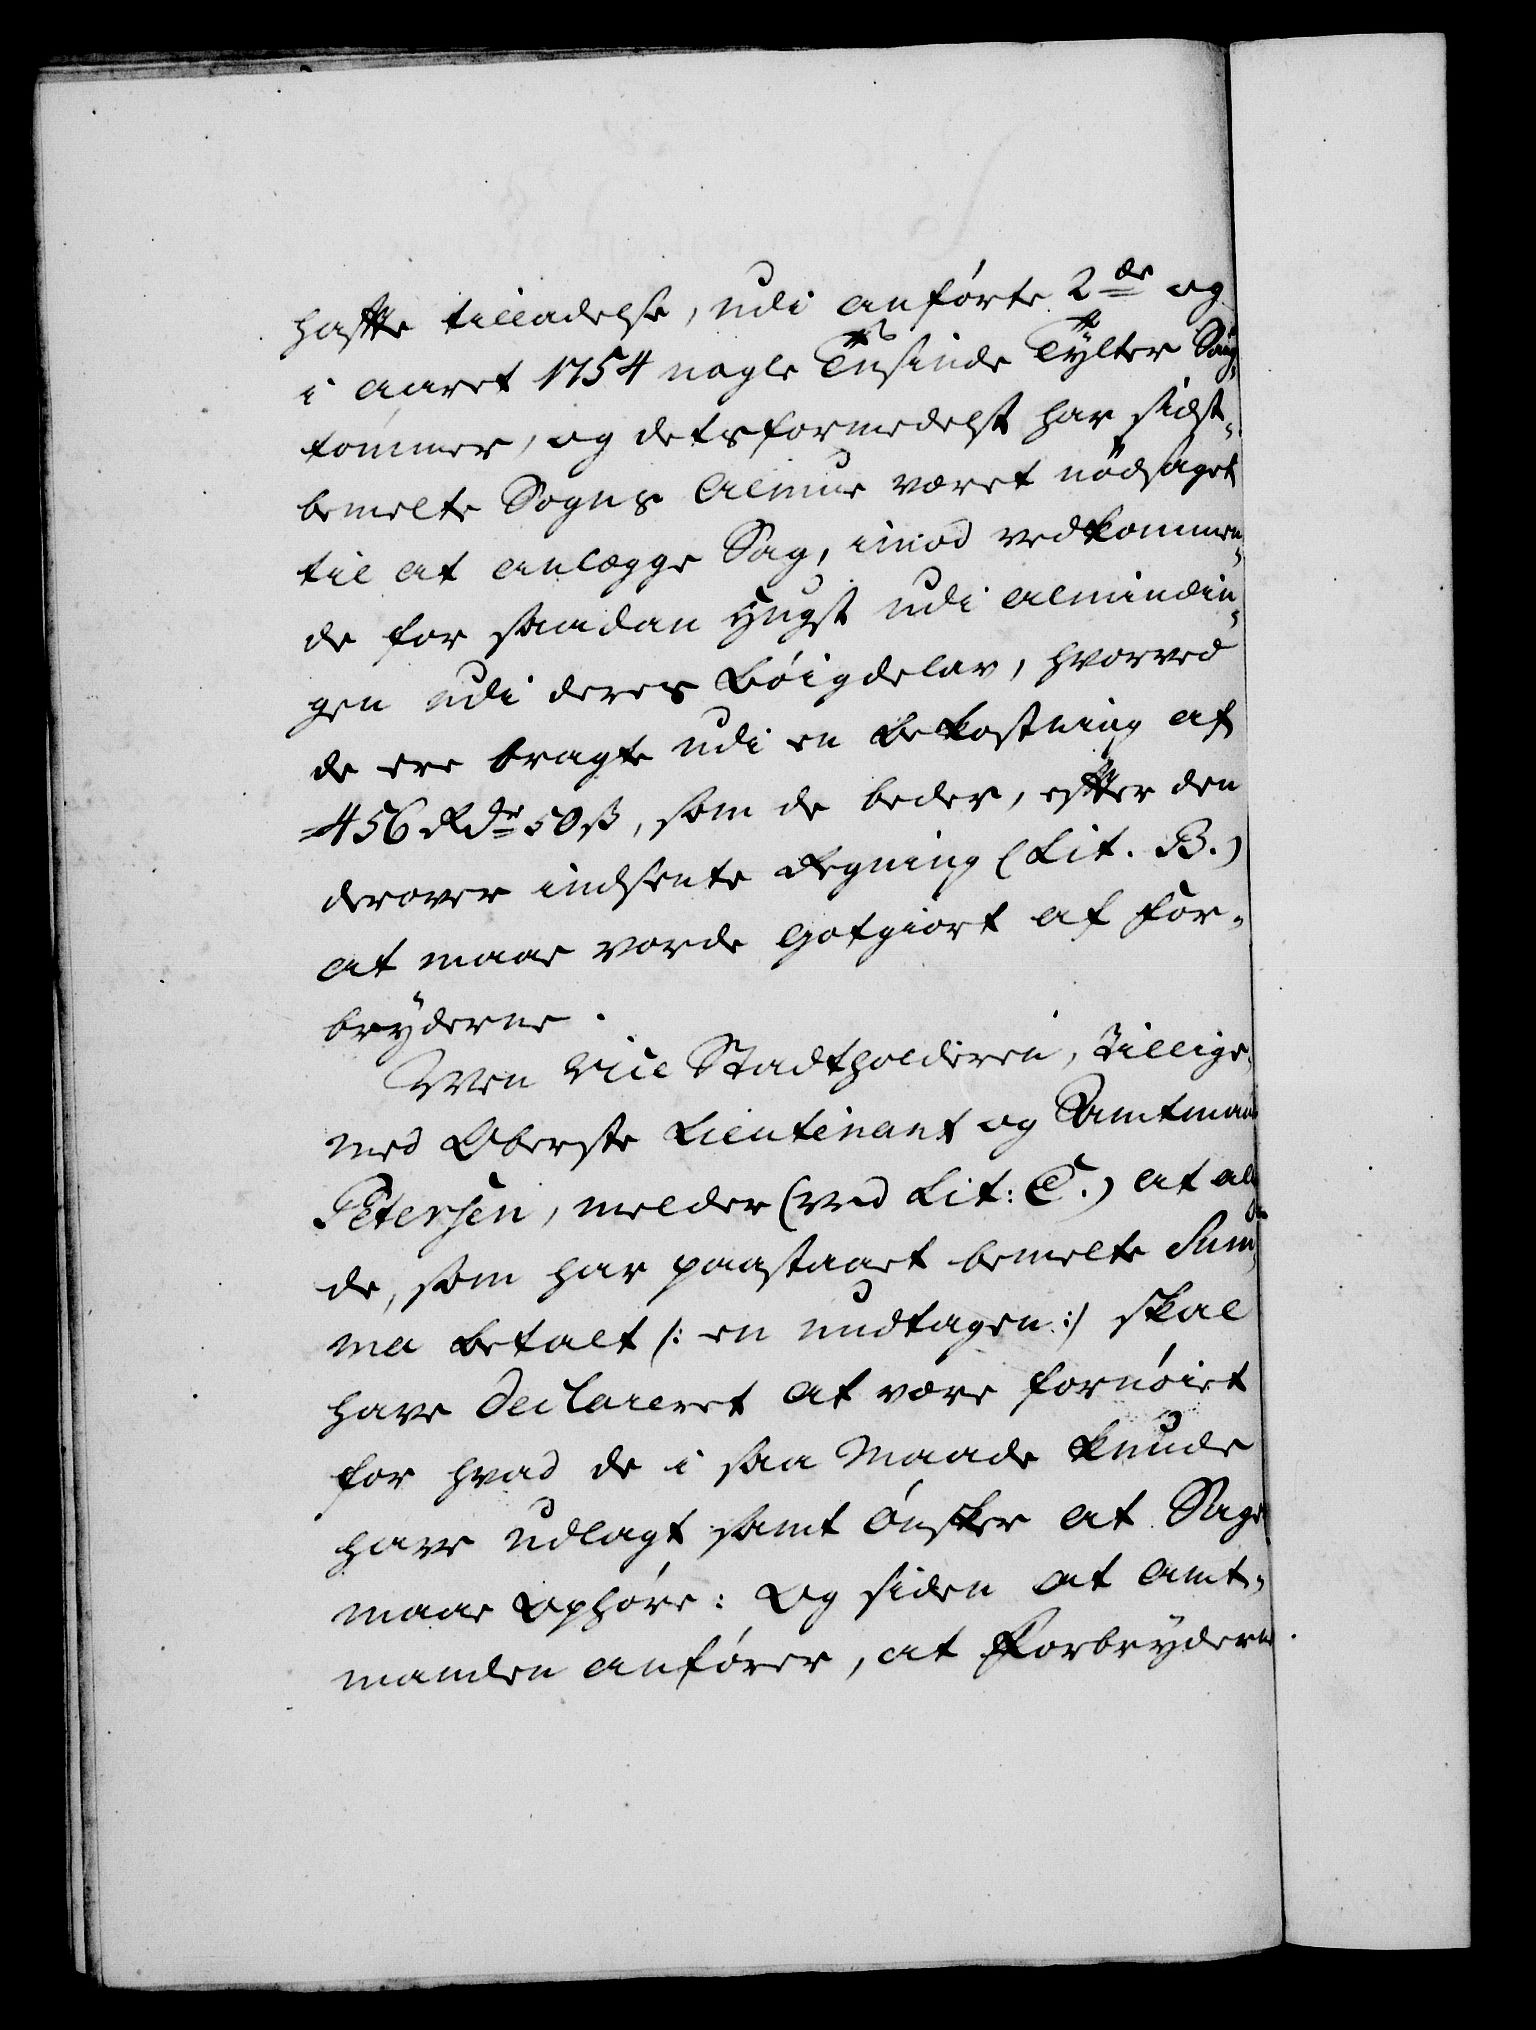 hafte tilladelse, udi anførte 2de og
i aaret 1754 nogle Tusinde Tylter Saug-
tømmer, og detsformedelst har sidst-
bemelte Sogns Almue været nødsaget
til at anlægge Sag, imod vedkommen-
de for saadan Hugst udi almindin-
gen udi deres Bøigdelav, hvorved
de ere bragte udi en Bekostning af
456 Rdr 50 ß, som de beder, efter den
derover indsente Regning (Lit. B.)
at maae vorde godtgiort af For-
bryderne.
Men Vice Stadtholderen, tillige-
med Oberste Lieutenant og Amtmand
Petersen, melder (ved Lit: C.) at alle
de, som har paastaaet bemelte Sum-
ma betalt /: en undtagen :/ skal
have declareret at være fornøiet
for hvad de i saa Maade kunde
have udlagt samt ønsker at Sagen
maae Ophøre: Og siden at Amt-
manden anfører, at Forbryderne